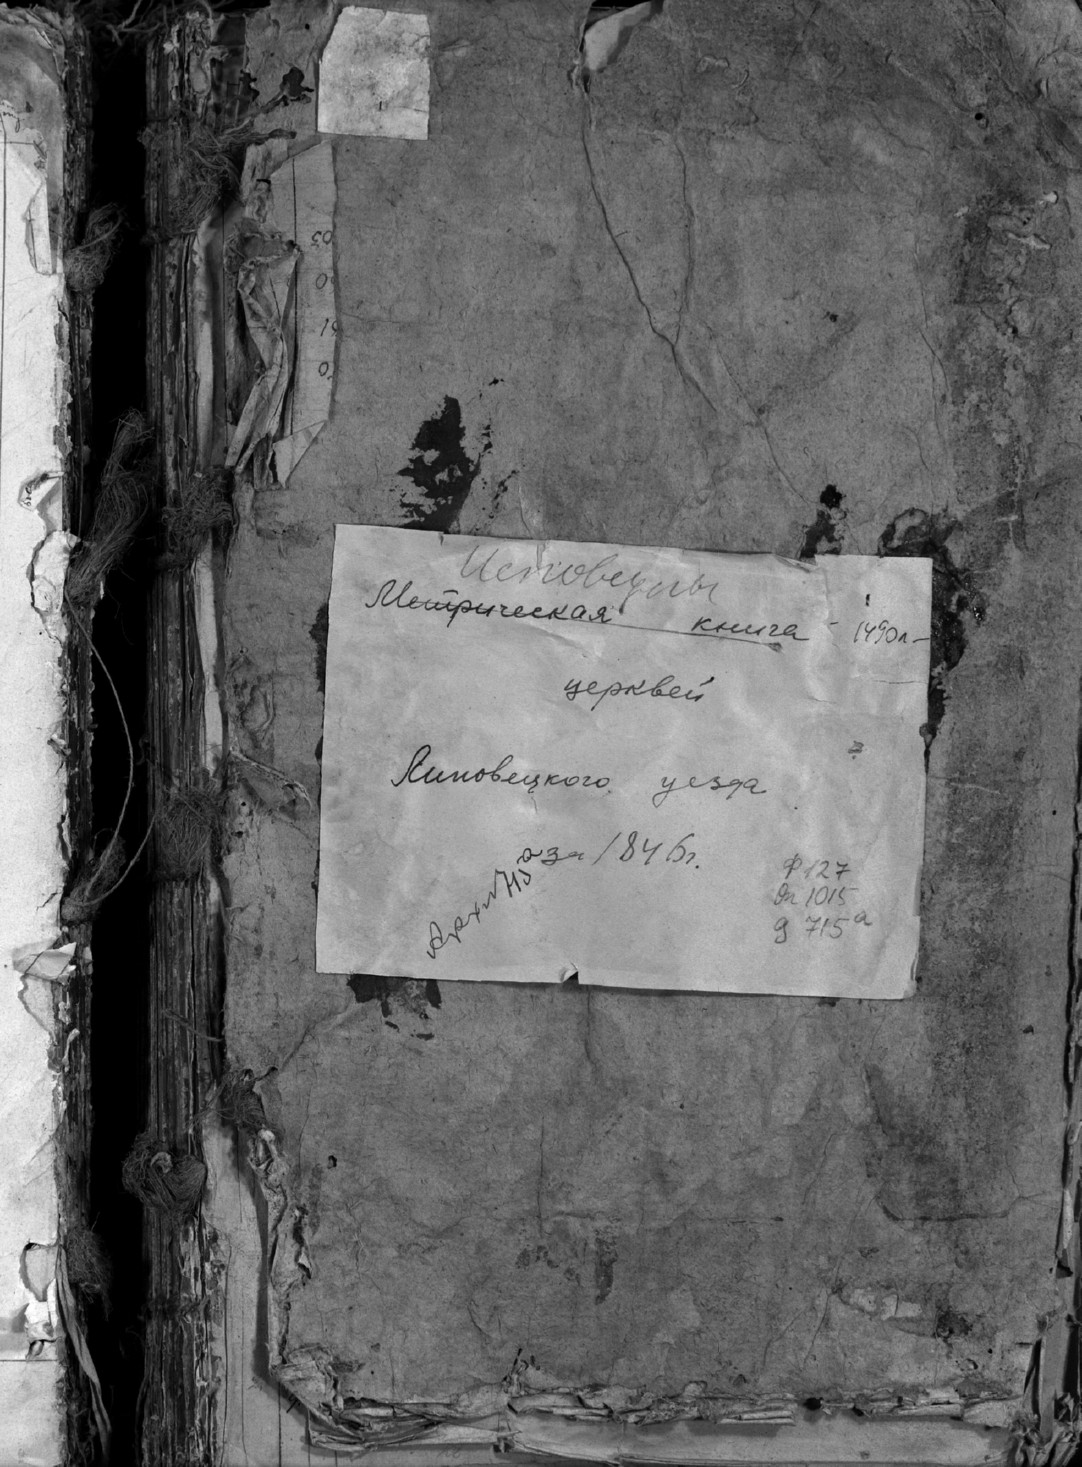 Исповедны
Метрическая книга - 1490л-
церквей
Липовецкого уезда
за 1846г.
Арх №715а
Ф 127
Оп 1015
д 715а